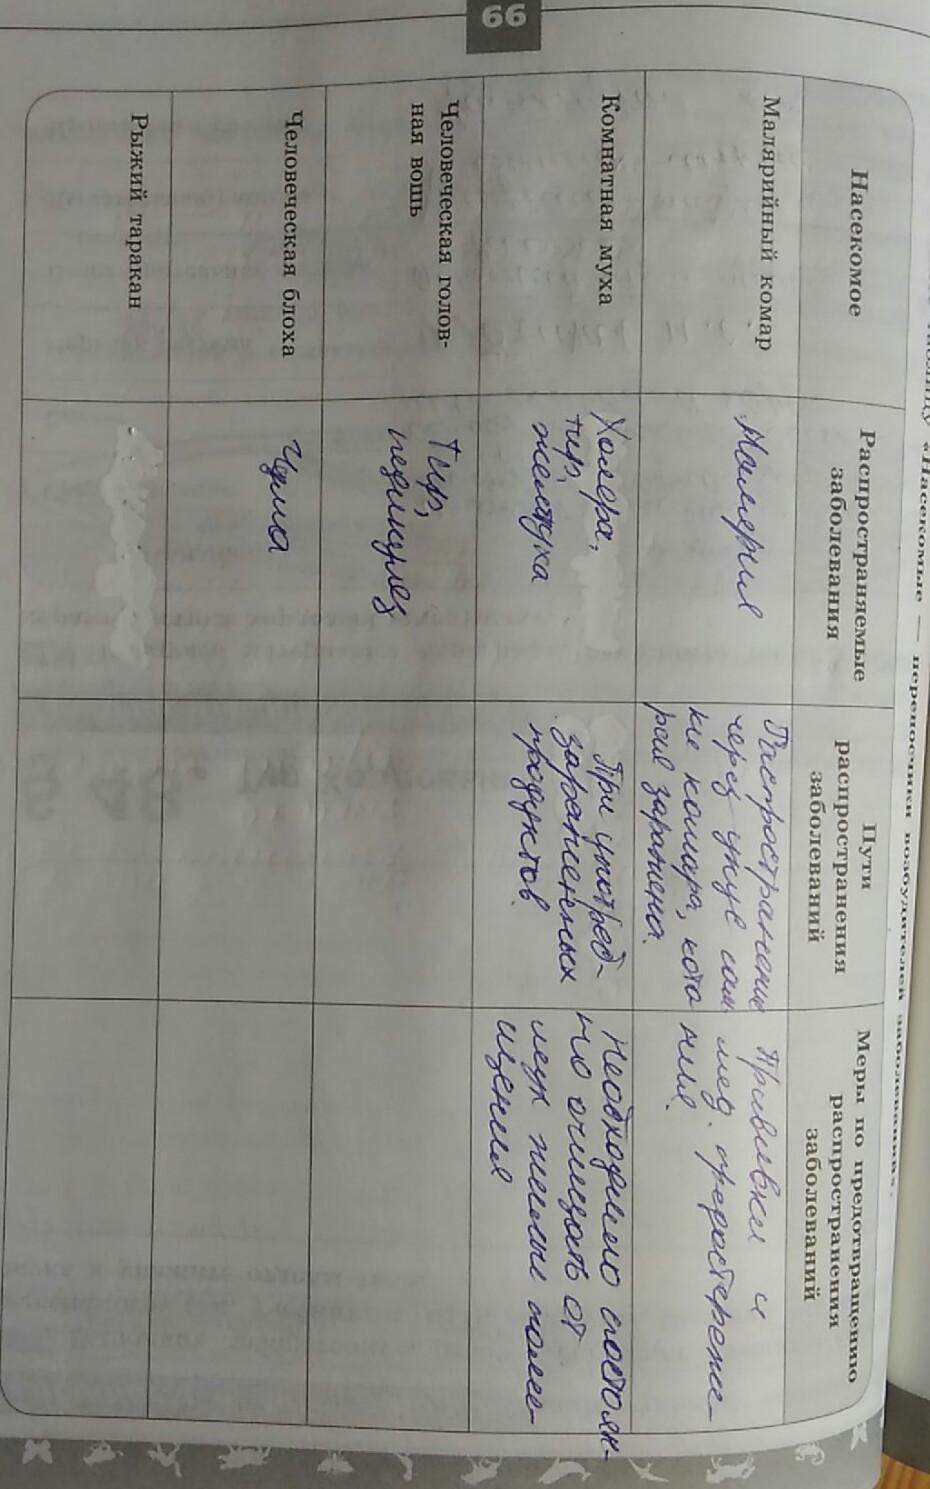 66
таблицу «Насекомые — переносчики возбудителей заболеваний».
Насекомое
Распространяемые
заболевания
Пути
распространения
заболеваний
Меры по предотвращению
распространения
заболеваний
Малярийный комар
Малярия
Распространение
через укус сам
ки комара, кото
рая заражена.
Прививки и
мед. предостереже-
ния.
Комнатная муха
Холера,
тиф,
желтуха
При употреб-
зараженных
продуктов
Необходимо постоян-
но очищать от
мух жилые поме-
щения
Человеческая голов-
ная вошь
Тиф,
педикулез
Человеческая блоха
Чума
Рыжий таракан